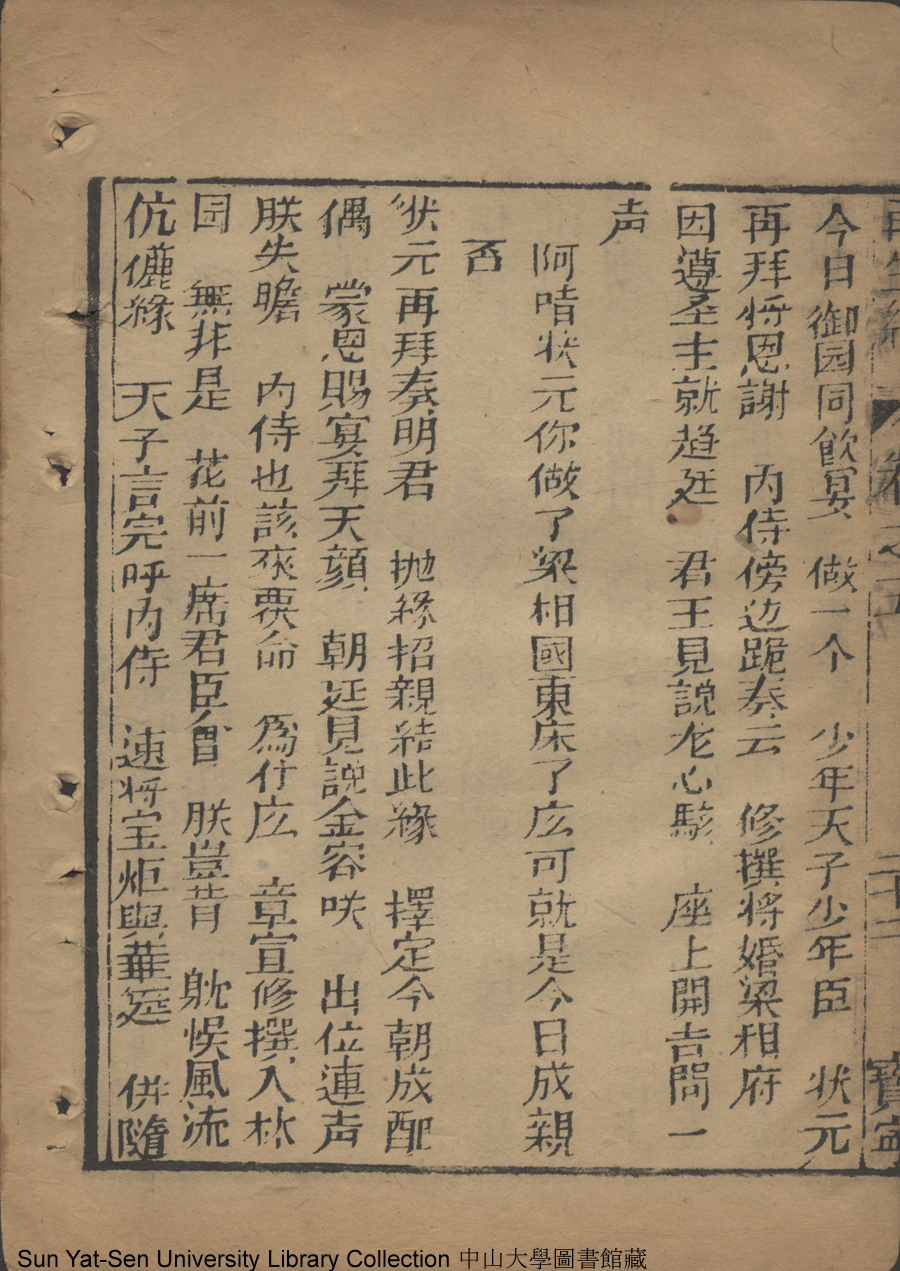 再生緣 卷之五 二十二 寶寧
今日御园同飲宴 做一个 少年天子少年臣 状元
再拜将恩謝 内侍傍边跪奏云 修撰将婚梁相府
因遵圣主就趋廷 君王見説龙心駭 座上開言問一
声
阿唶状元你做了梁相國東床了庅可就是今日成親
否
状元再拜奏明君 抛綵招親結此緣 擇定今朝成配
偶 蒙恩賜宴拜天顔 朝廷見説金容咲 出位連声
朕失瞻 内侍也該來禀命 為什庅 章宣修撰入林
园 無非是 花前一席君臣會 朕豈肯 躭悞風流
伉儷緣 天子言完呼内侍 速将宝炬與華筵 併隨
Sun Yat-Sen University Library Collection 中山大學圖書館藏